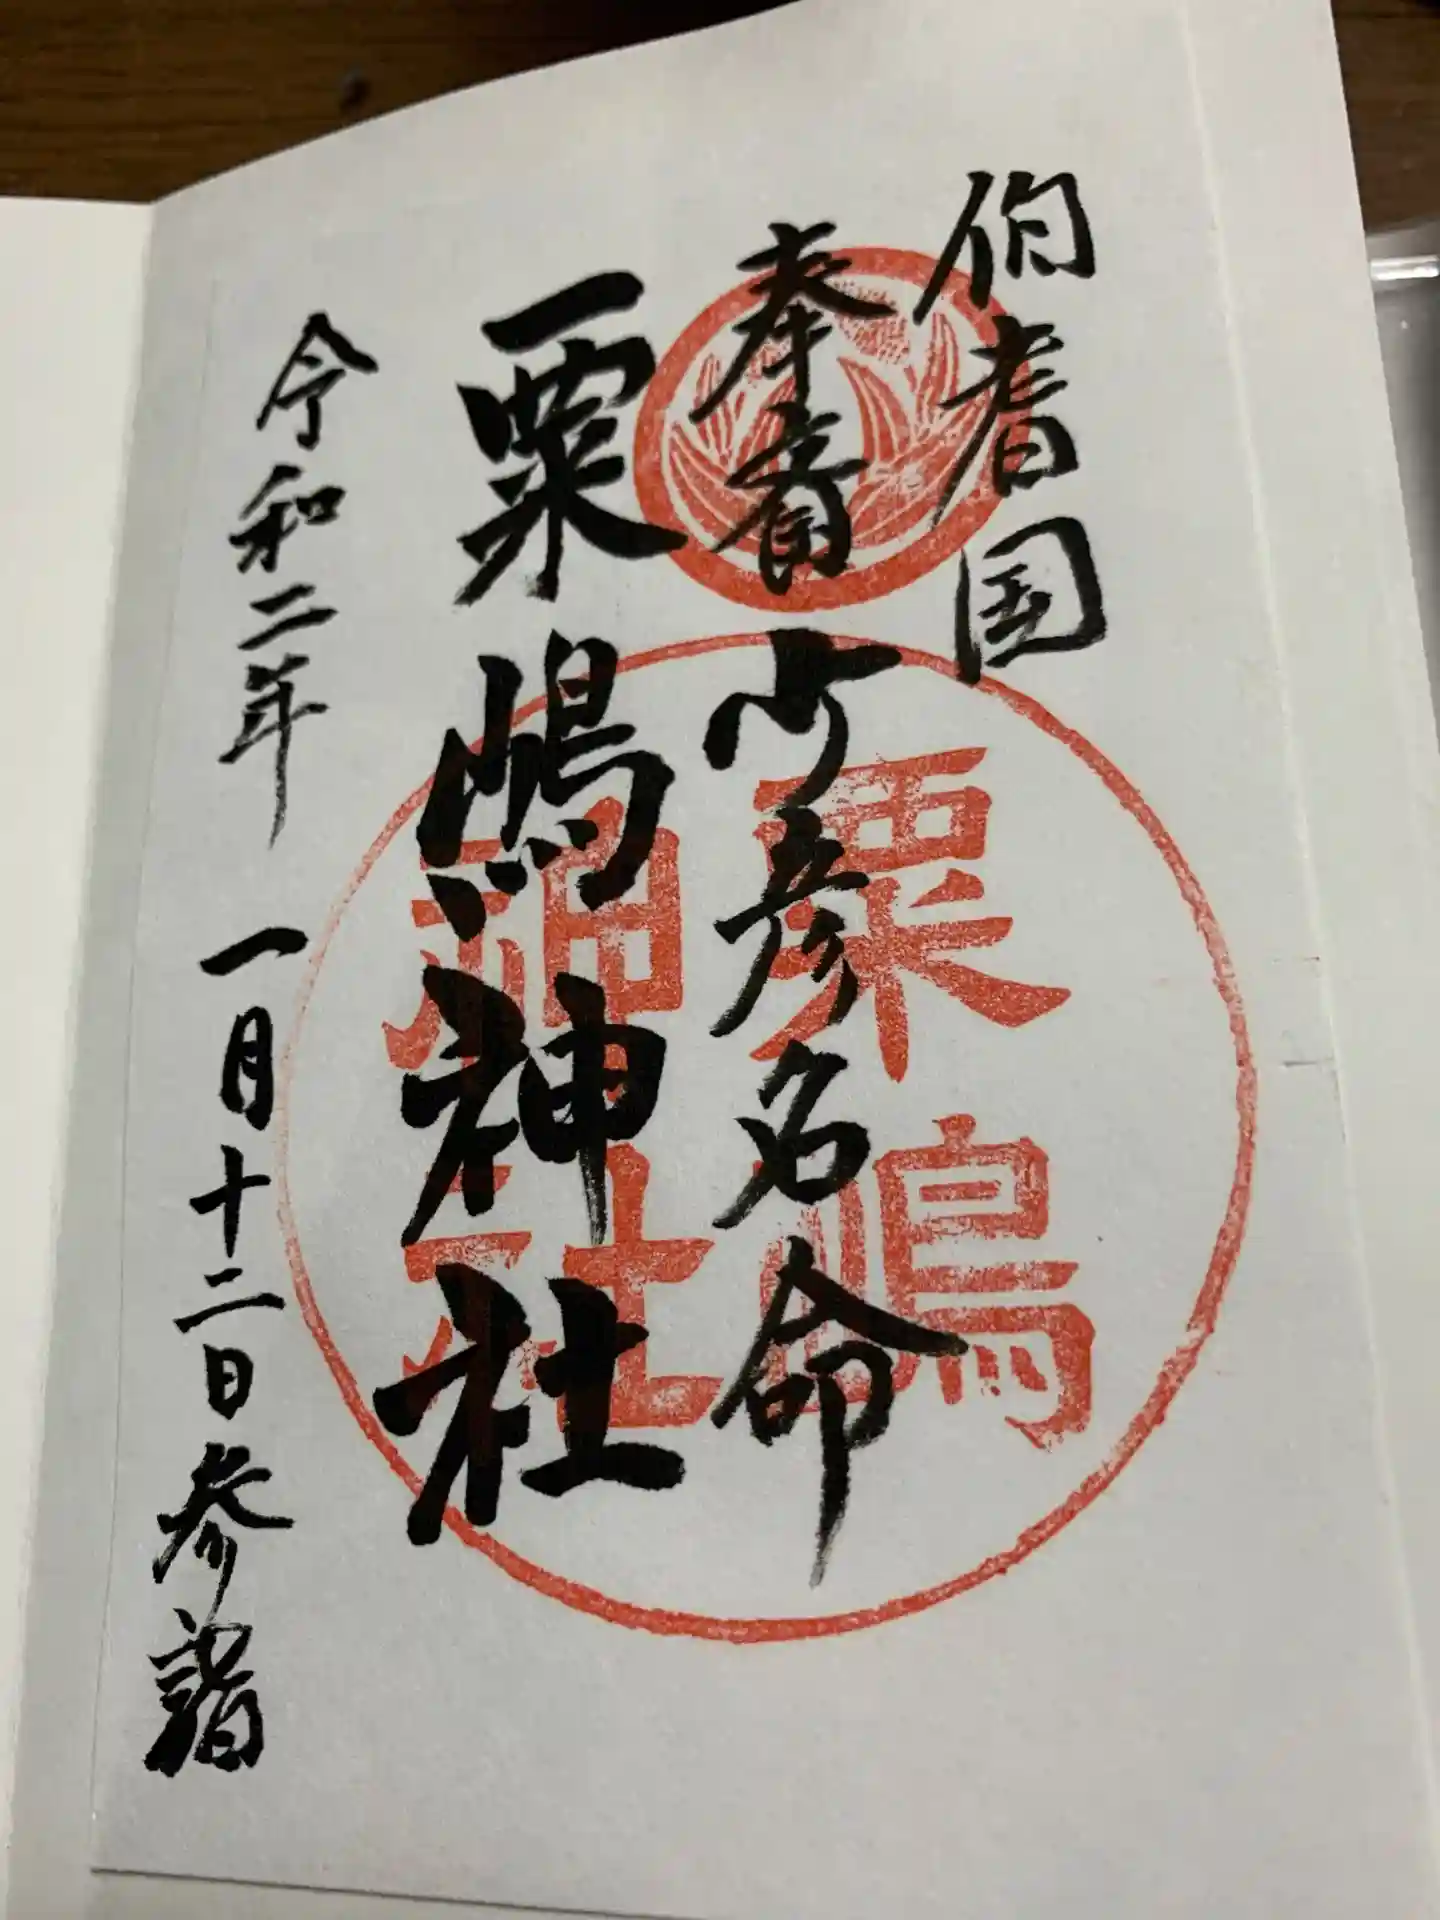 伯耆国
奉斎 少彦名命
粟嶋神社
令和二年 一月十二日参詣
粟嶋
神社